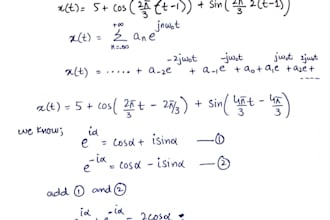 x(t) = 5 + cos(2π/3 (t-1)) + sin(2π/3 2(t-1))
x(t) = Σ_{n=-∞}^{+∞} a_n e^{jnω₀t}
x(t) = ...... + a_{-2}e^{-2jω₀t} + a_{-1}e^{-jω₀t} + a₀ + a₁e^{jω₀t} + a₂e^{2jω₀t} +
x(t) = 5 + cos(2π/3 t - 2π/3) + sin(4π/3 t - 4π/3)
we know;
e^{iα} = cosα + isinα —①
e^{-iα} = cosα - isinα —②
add ① and ②
e^{-iα} = 2cosα